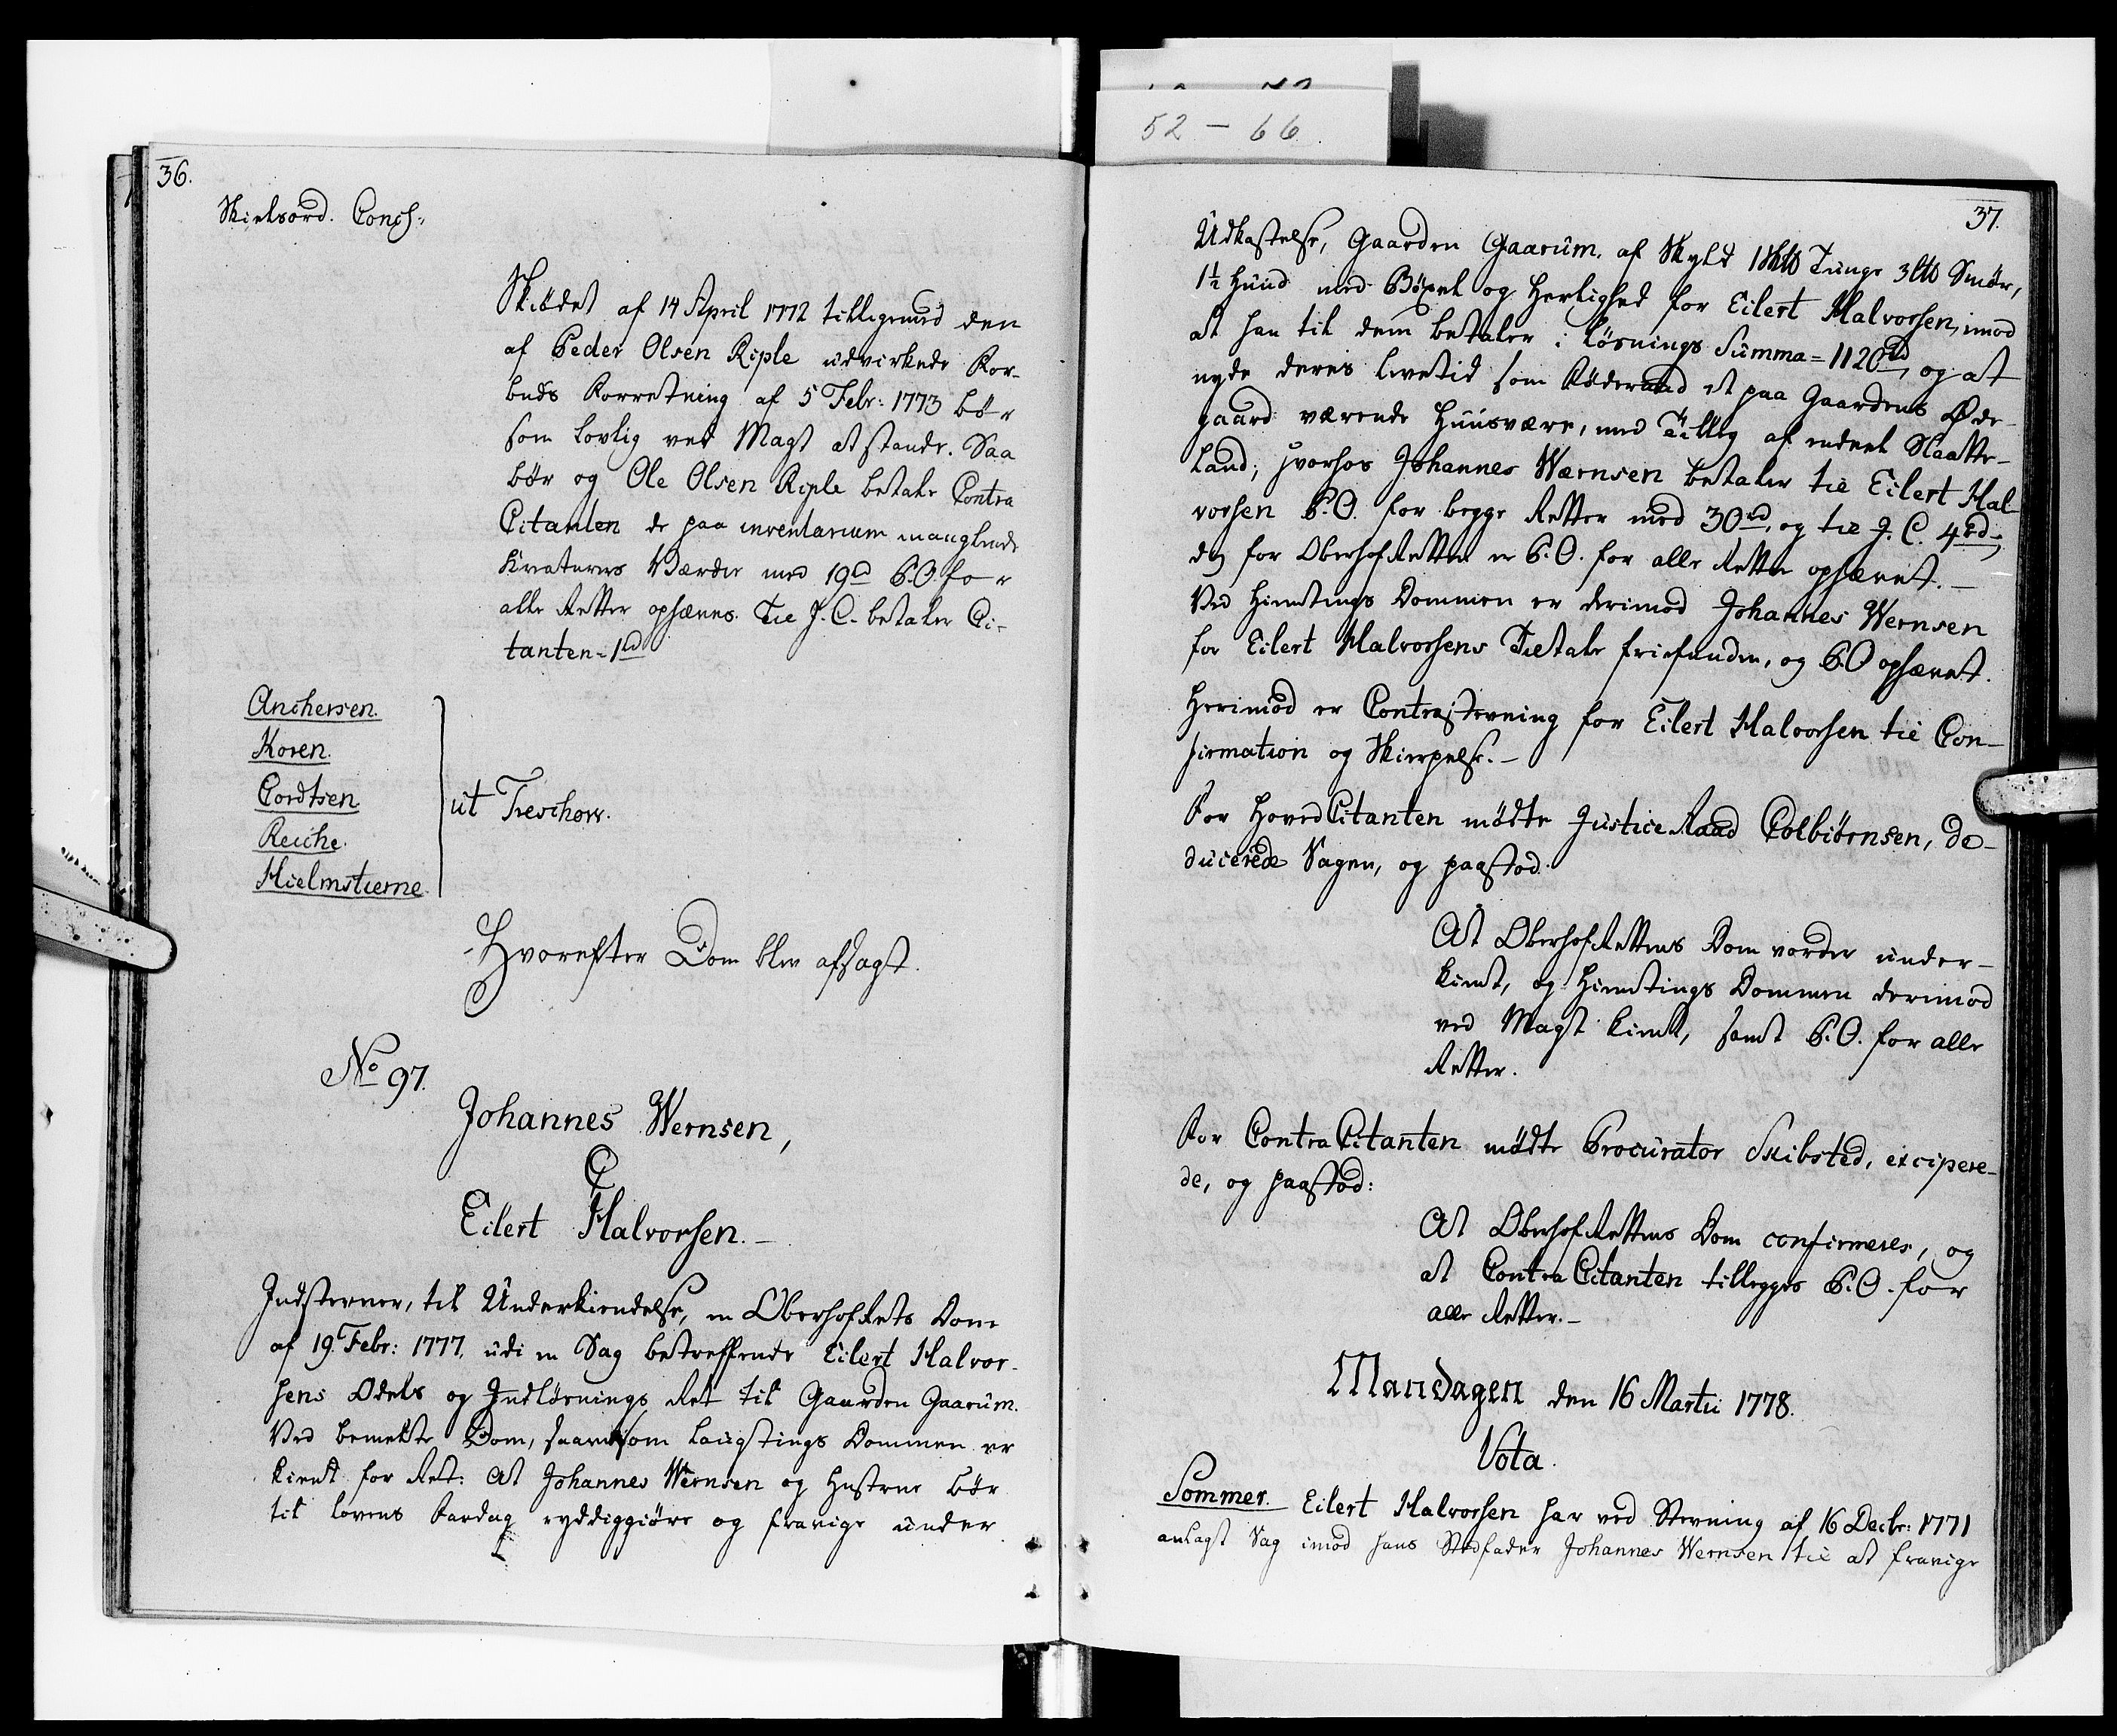 52 – 66.
36.
Skielsord. Concl:
Skiödet af 14 April 1772 tilligemed den
af Peder Olsen Riple udvirkede For-
buds Forretning af 5 Febr: 1773 bör
som lovlig ved Magt at stande. Saa
bör og Ole Olsen Riple betale Contra
Citanten de paa inventarium manglende
Kreaturers Værdie med 19rd P.O. for
alle Retter ophæves. Til J.C. betaler Ci-
tanten = 1rd
Anchersen.
Koren.
Cordtsen
Reiche.
Hielmstierne.
ut Treschow.
Hvorefter Dom blev afsagt.
No 97.
Johannes Wernsen,
C
Eilert Halvorsen. –
Indstevner, til Underkiendelse, en OberhofRets Dom
af 19. Febr: 1777. udi en Sag betreffende Eilert Halvor-
sens Odels og Indlösnings Ret til Gaarden Gaarum.
Ved bemelte Dom, saavelsom Laugtings Dommen er
kiendt for Ret: At Johannes Wernsen og Hustrue bör
til lovens Fardag ryddiggiöre og fravige under
37.
Udkastelse, Gaarden Gaarum, af Skyld Tunge 3 Smör,
1½ Huud med Böxel og Herlighed for Eilert Halvorsen, imod
at han til dem betaler i Lösnings Summa = 1120rd, og at
nyde deres livetid som Föderaad et paa Gaardens Öde-
gaard værende Huusvære, med Tillæg af endeel Slaatte-
land; hvorhos Johannes Wærnsen betaler til Eilert Hal-
vorsen P.O. for begge Retter med 30rd, og til J.C. 4rd;
Og for OberhofRetten er P.O. for alle Retter ophævet. –
Ved Hiemtings Dommen er derimod Johannes Wernsen
for Eilert Halvorsens Tiltale friefunden, og P.O ophævet.
Herimod er Contrastevning for Eilert Halvorsen til Con-
firmation og Skierpelse. –
For HovedCitanten mödte JusticeRaad Colbiörnsen, de-
ducerede Sagen, og paastod:
At OberhofRettens Dom vorder under-
kiendt, og Hiemtings Dommen derimod
ved Magt kiendt, samt P.O. for alle
Retter.
For ContraCitanten mödte Procurator Skibsted, excipere-
de, og paastod:
At OberhofRettens Dom confirmeres, og
at ContraCitanten tillegges P.O. for
alle Retter. –
Mandagen den 16 Martii 1778.
Vota.
Sommer. Eilert Halvorsen har ved Stevning af 16 Decbr: 1771
anlagt Sag imod hans Stedfader Johannes Wernsen til at fravige